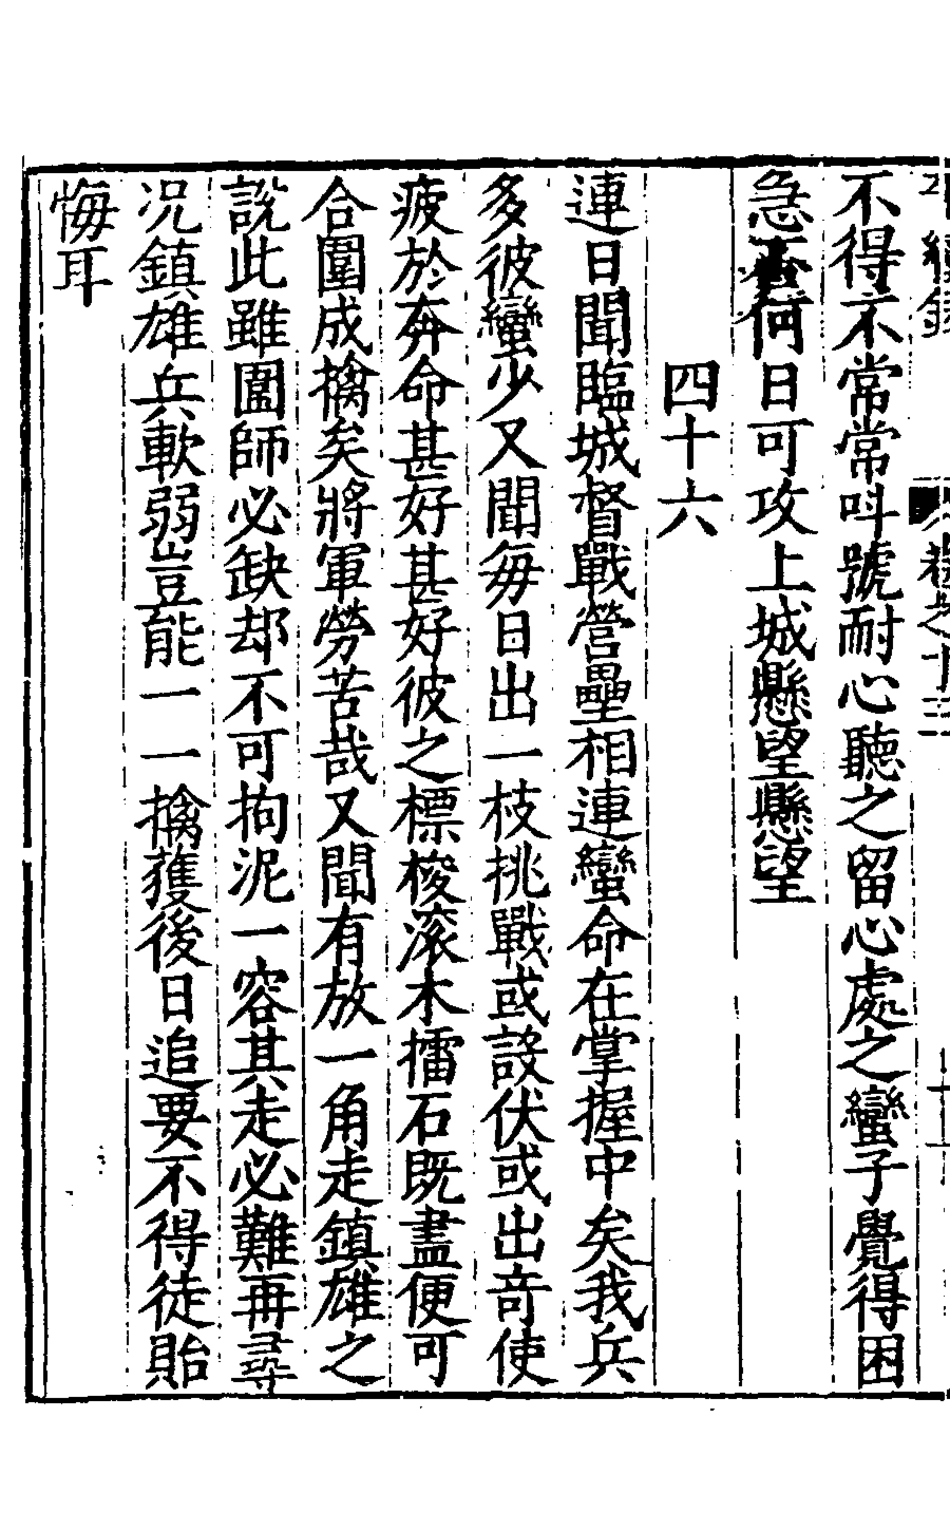 卷之十三
十
不得不常常呌號耐心聽之留心處之蠻子覺得困
急否何日可攻上城懸望懸望
四十六
連日聞臨城督戰營壘相連蠻命在掌握中矣我兵
多彼蠻少又聞每日出一枝挑戰或設伏或出竒使
疲於奔命甚好甚好彼之標梭滚木擂石既盡便可
合圍成擒矣將軍勞苦哉又聞有放一角走鎮雄之
說此雖圍師必缺却不可拘泥一容其走必難再尋
况鎮雄兵軟弱豈能一一擒獲後日追要不得徒貽
悔耳